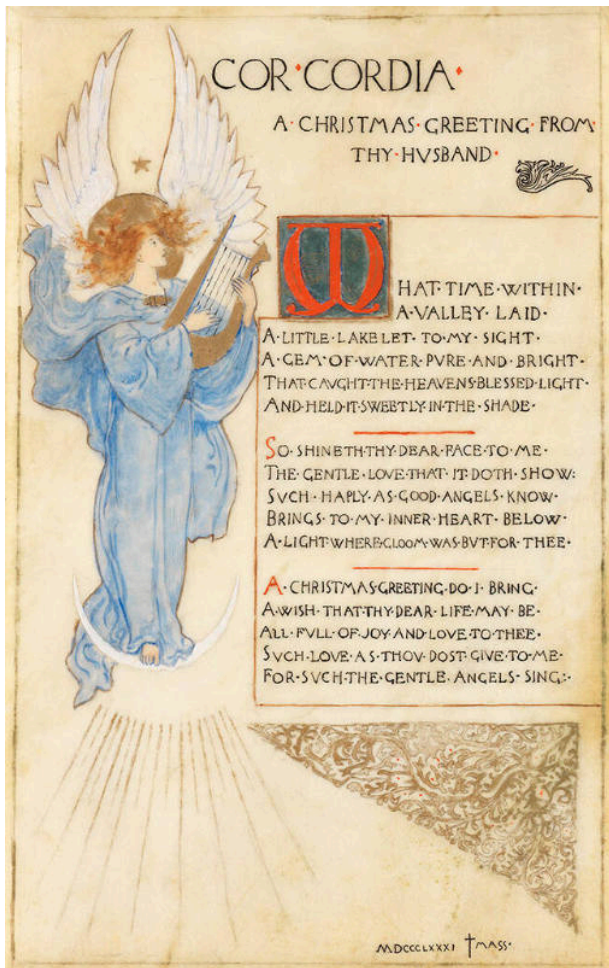 COR·CORDIA·
A·CHRISTMAS·GREETING·FROM·
THY·HVSBAND·
WHAT·TIME·WITHIN·
A·VALLEY·LAID·
A·LITTLE·LAKELET·TO·MY·SIGHT·
A·GEM·OF·WATER·PVRE·AND·BRIGHT·
THAT·CAVGHT·THE·HEAVENS·BLESSED·LIGHT·
AND·HELD·IT·SWEETLY·IN·THE·SHADE·
SO·SHINETH·THY·DEAR·FACE·TO·ME·
THE·GENTLE·LOVE·THAT·IT·DOTH·SHOW:
SVCH·HAPLY·AS·GOOD·ANGELS·KNOW·
BRINGS·TO·MY·INNER·HEART·BELOW·
A·LIGHT·WHERE·GLOOM·WAS·BVT·FOR·THEE·
A·CHRISTMAS·GREETING·DO·I·BRING·
A·WISH·THAT·THY·DEAR·LIFE·MAY·BE·
ALL·FVLL·OF·JOY·AND·LOVE·TO·THEE·
SVCH·LOVE·AS·THOV·DOST·GIVE·TO·ME·
FOR·SVCH·THE·GENTLE·ANGELS·SING:·
MDCCCLXXXI †MASS·